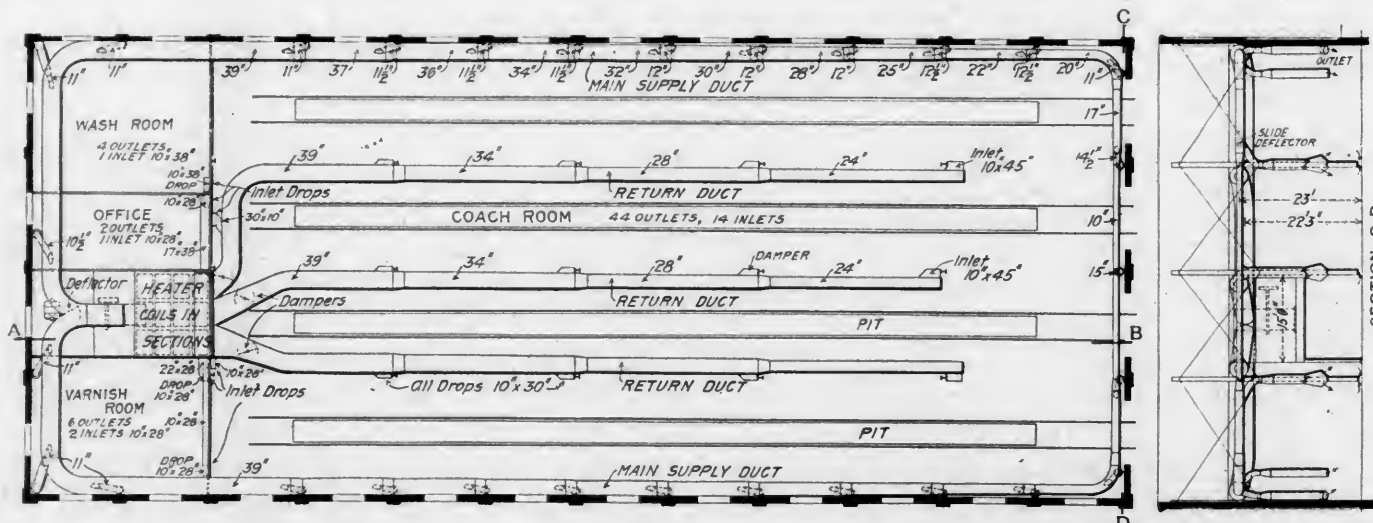 C
11"
11"
39"
11"
37"
11½"
36"
11½"
34"
11½"
32"
12"
30"
12"
28"
12"
25"
12½"
22"
12½"
20"
11"
MAIN SUPPLY DUCT
17"
WASH ROOM
4 OUTLETS
1 INLET 10"x38"
10"x38"
DROP
10"x28"
Inlet Drops
30"x10"
39"
34"
28"
24"
Inlet
10"x45"
RETURN DUCT
14½"
OFFICE
2 OUTLETS
1 INLET 10"x28"
17"x38"
10½"
COACH ROOM 44 OUTLETS, 14 INLETS
10"
39"
34"
28"
DAMPER
24"
Inlet
10"x45"
15"
RETURN DUCT
Deflector
HEATER
COILS IN
SECTIONS
Dampers
A
PIT
B
11"
22"x28"
10"x28"
DROP
10"x28"
Inlet Drops
All Drops 10"x30"
RETURN DUCT
VARNISH
ROOM
6 OUTLETS
2 INLETS 10"x28"
10"x28"
PIT
DROP
10"x28"
11"
39"
MAIN SUPPLY DUCT
D
OUTLET
SLIDE
DEFLECTOR
23'
22'3"